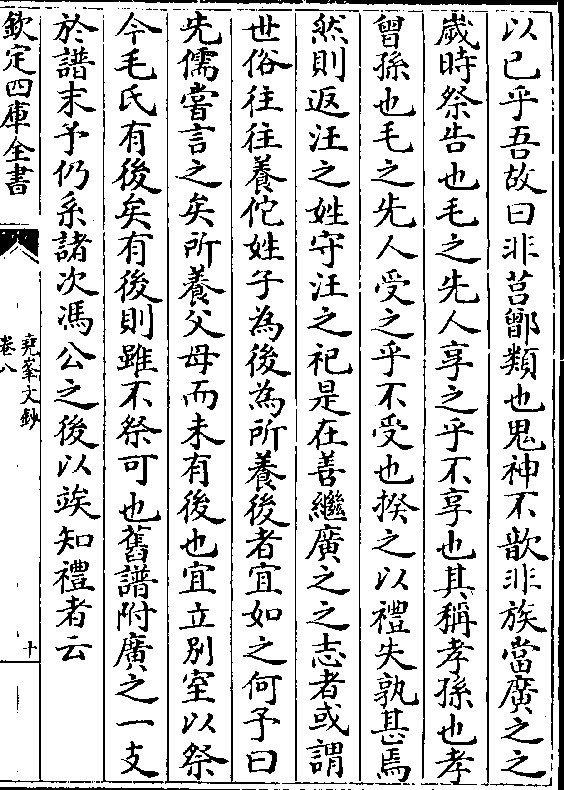 以已乎吾故曰非莒鄫類也鬼神不歆非族當廣之之
歲時祭告也毛之先人享之乎不享也其稱孝孫也孝
曾孫也毛之先人受之乎不受也揆之以禮失孰甚焉
然則返汪之姓守汪之祀是在善繼廣之之志者或謂
世俗往往養佗姓子為後為所養後者宜如之何予曰
先儒嘗言之矣所養父母而未有後也宜立別室以祭
今毛氏有後矣有後則雖不祭可也舊譜附廣之一支
於譜末予仍系諸次馮公之後以竢知禮者云
欽定四庫全書
堯峯文鈔
卷八
十